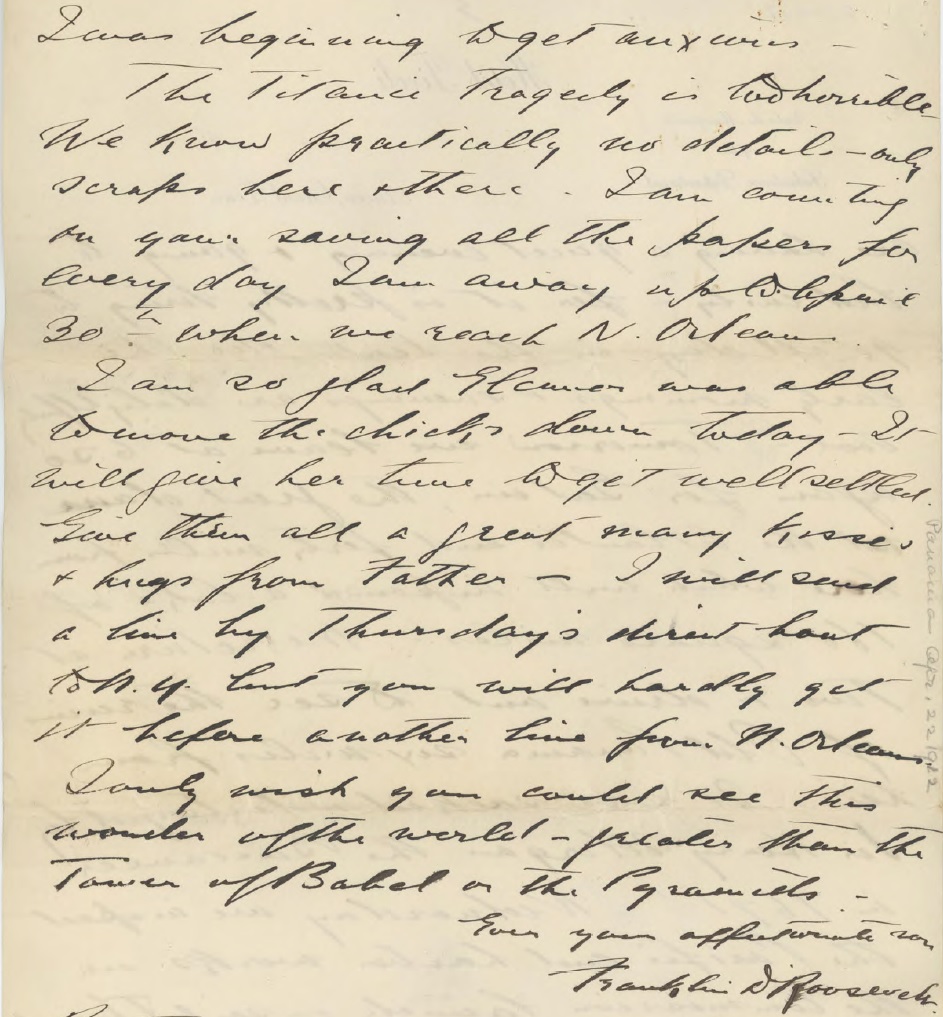 I was beginning to get anxious –
The Titanic Tragedy is too horrible
We know practically no details – only
scraps here & there. I am counting
on your saving all the papers for
every day I am away up to April
30th when we reach N. Orleans.
I am so glad Eleanor was able
to move the chicks down today – It
will give her time to get well settled.
Give them all a great many kisses
& hugs from Father – I will send
a line by Thursday's direct boat
to N.Y. but you will hardly get
it before another line from N. Orleans.
I only wish you could see this
wonder of the world – greater than the
Tower of Babel or the Pyramids –
Ever your affectionate son
Franklin D. Roosevelt.
Panama Apr. 22 1912